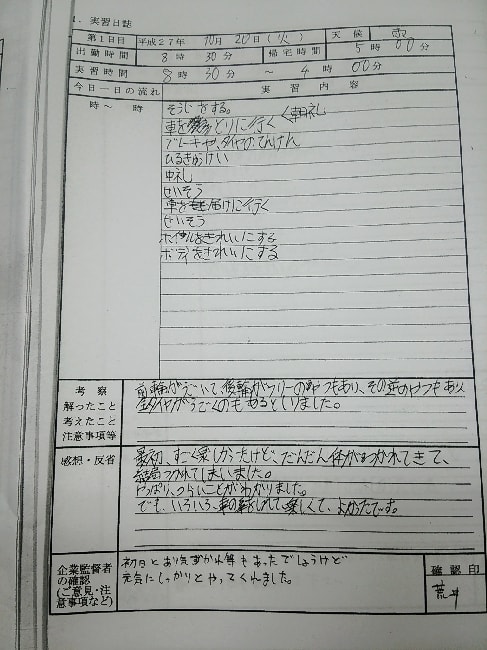 1. 実習日誌
第1日目 平成27年 10月 20日(火) 天候
出勤時間 8時 30分 帰宅時間 5時 00分
実習時間 8時 30分 ～ 4時 00分
今日一日の流れ 実習内容
時～ 時
そうじをする。
車を とりに行く 朝礼
ブレーキや、タイヤの てんけん
ひるきゅうけい
中礼
せいそう
車を 届けに行く
せいそう
ホイールをきれいにする
ボディをきれいにする
考察
解ったこと
考えたこと
注意事項等
前輪が て、後輪がフリーの やつもあり、その逆のやつもあり
タイヤがうごくのも あるとしりました。
感想・反省
最初、すごく楽しかったけど、だんだん体がつかれてきて、
結局つかれてしまいました。
やっぱり、つらいことがわかりました。
でも、いろいろ、車の事 しれて、楽しくて、よかったです。
企業監督者
の確認
(ご意見・注
意事項など)
初日とあり気づかれ等もあったでしょうけど
元気にしっかりとやってくれました。
確認印
荒井